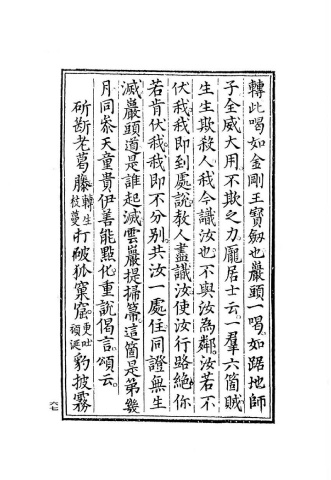 轉此喝如金剛王寳劔也巖頭一喝如踞地師
子全威大用不欺之力龐居士云一羣六箇賊
生生欺殺人我今識汝也不與汝為鄰汝若不
伏我我即到處說教人盡識汝使汝行路絶你
若肯伏我我即不分別共汝一處住同證無生
滅巖頭道是誰起滅雲巖提掃箒這箇是第幾
月同叅天童貴伊善能點化重說偈言頌云
斫斷老葛藤轉生枝蔓打破狐窠窟更吐頑涎豹披霧
六七